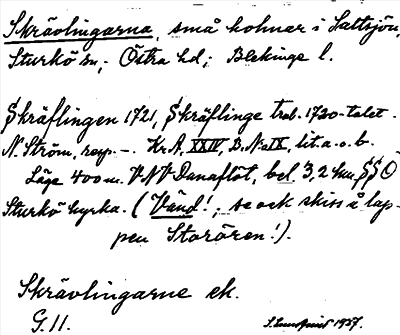 Skrävlingarna, små holmar i Saltsjön,
Sturkö sn, Östra hd, Blekinge l.
Skräflingen 1721, Skräflinge trol. 1730-talet.
N. Ström, resp. –. Kr. A. XXIV, D. N:o IX, lit. a. o. b.
Läge 400 m. VNV Danaflöt, bel. 3,2 km SSO
Sturkö kyrka. (Vänd!, se ock skiss å lap-
pen Storören!).
Skrävlingarne ek.
G. 11.
S. Lundqvist 1937.